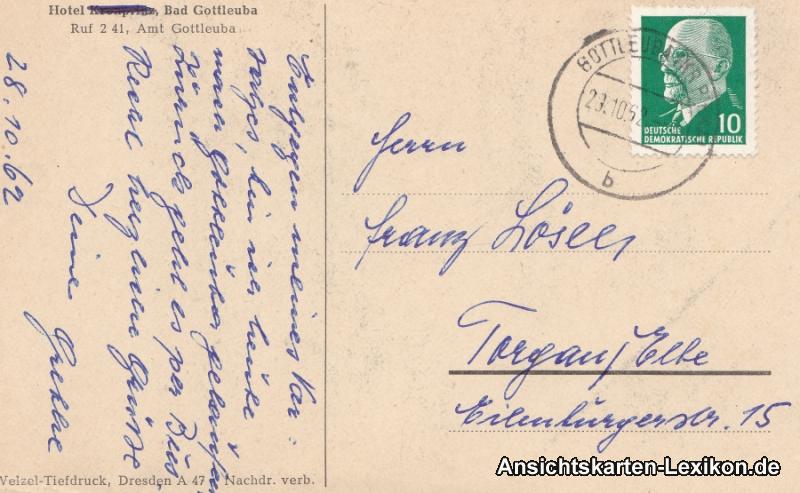 Hotel Kronprinz, Bad Gottleuba
Ruf 2 41, Amt Gottleuba
28.10.62
Entgegen meines Vor-
satzes, bin ich heute
nach Gottleuba gelaufen
zurück geht es per Bus
Recht herzliche Grüße
Deine Grethe
Welzel-Tiefdruck, Dresden A 47 Nachdr. verb.
GOTTLEUBA
29.10.62
b
DEUTSCHE
DEMOKRATISCHE REPUBLIK
10
Herrn
Franz Löser
Torgau/Elbe
Eilenburgerstr. 15
Ansichtskarten-Lexikon.de